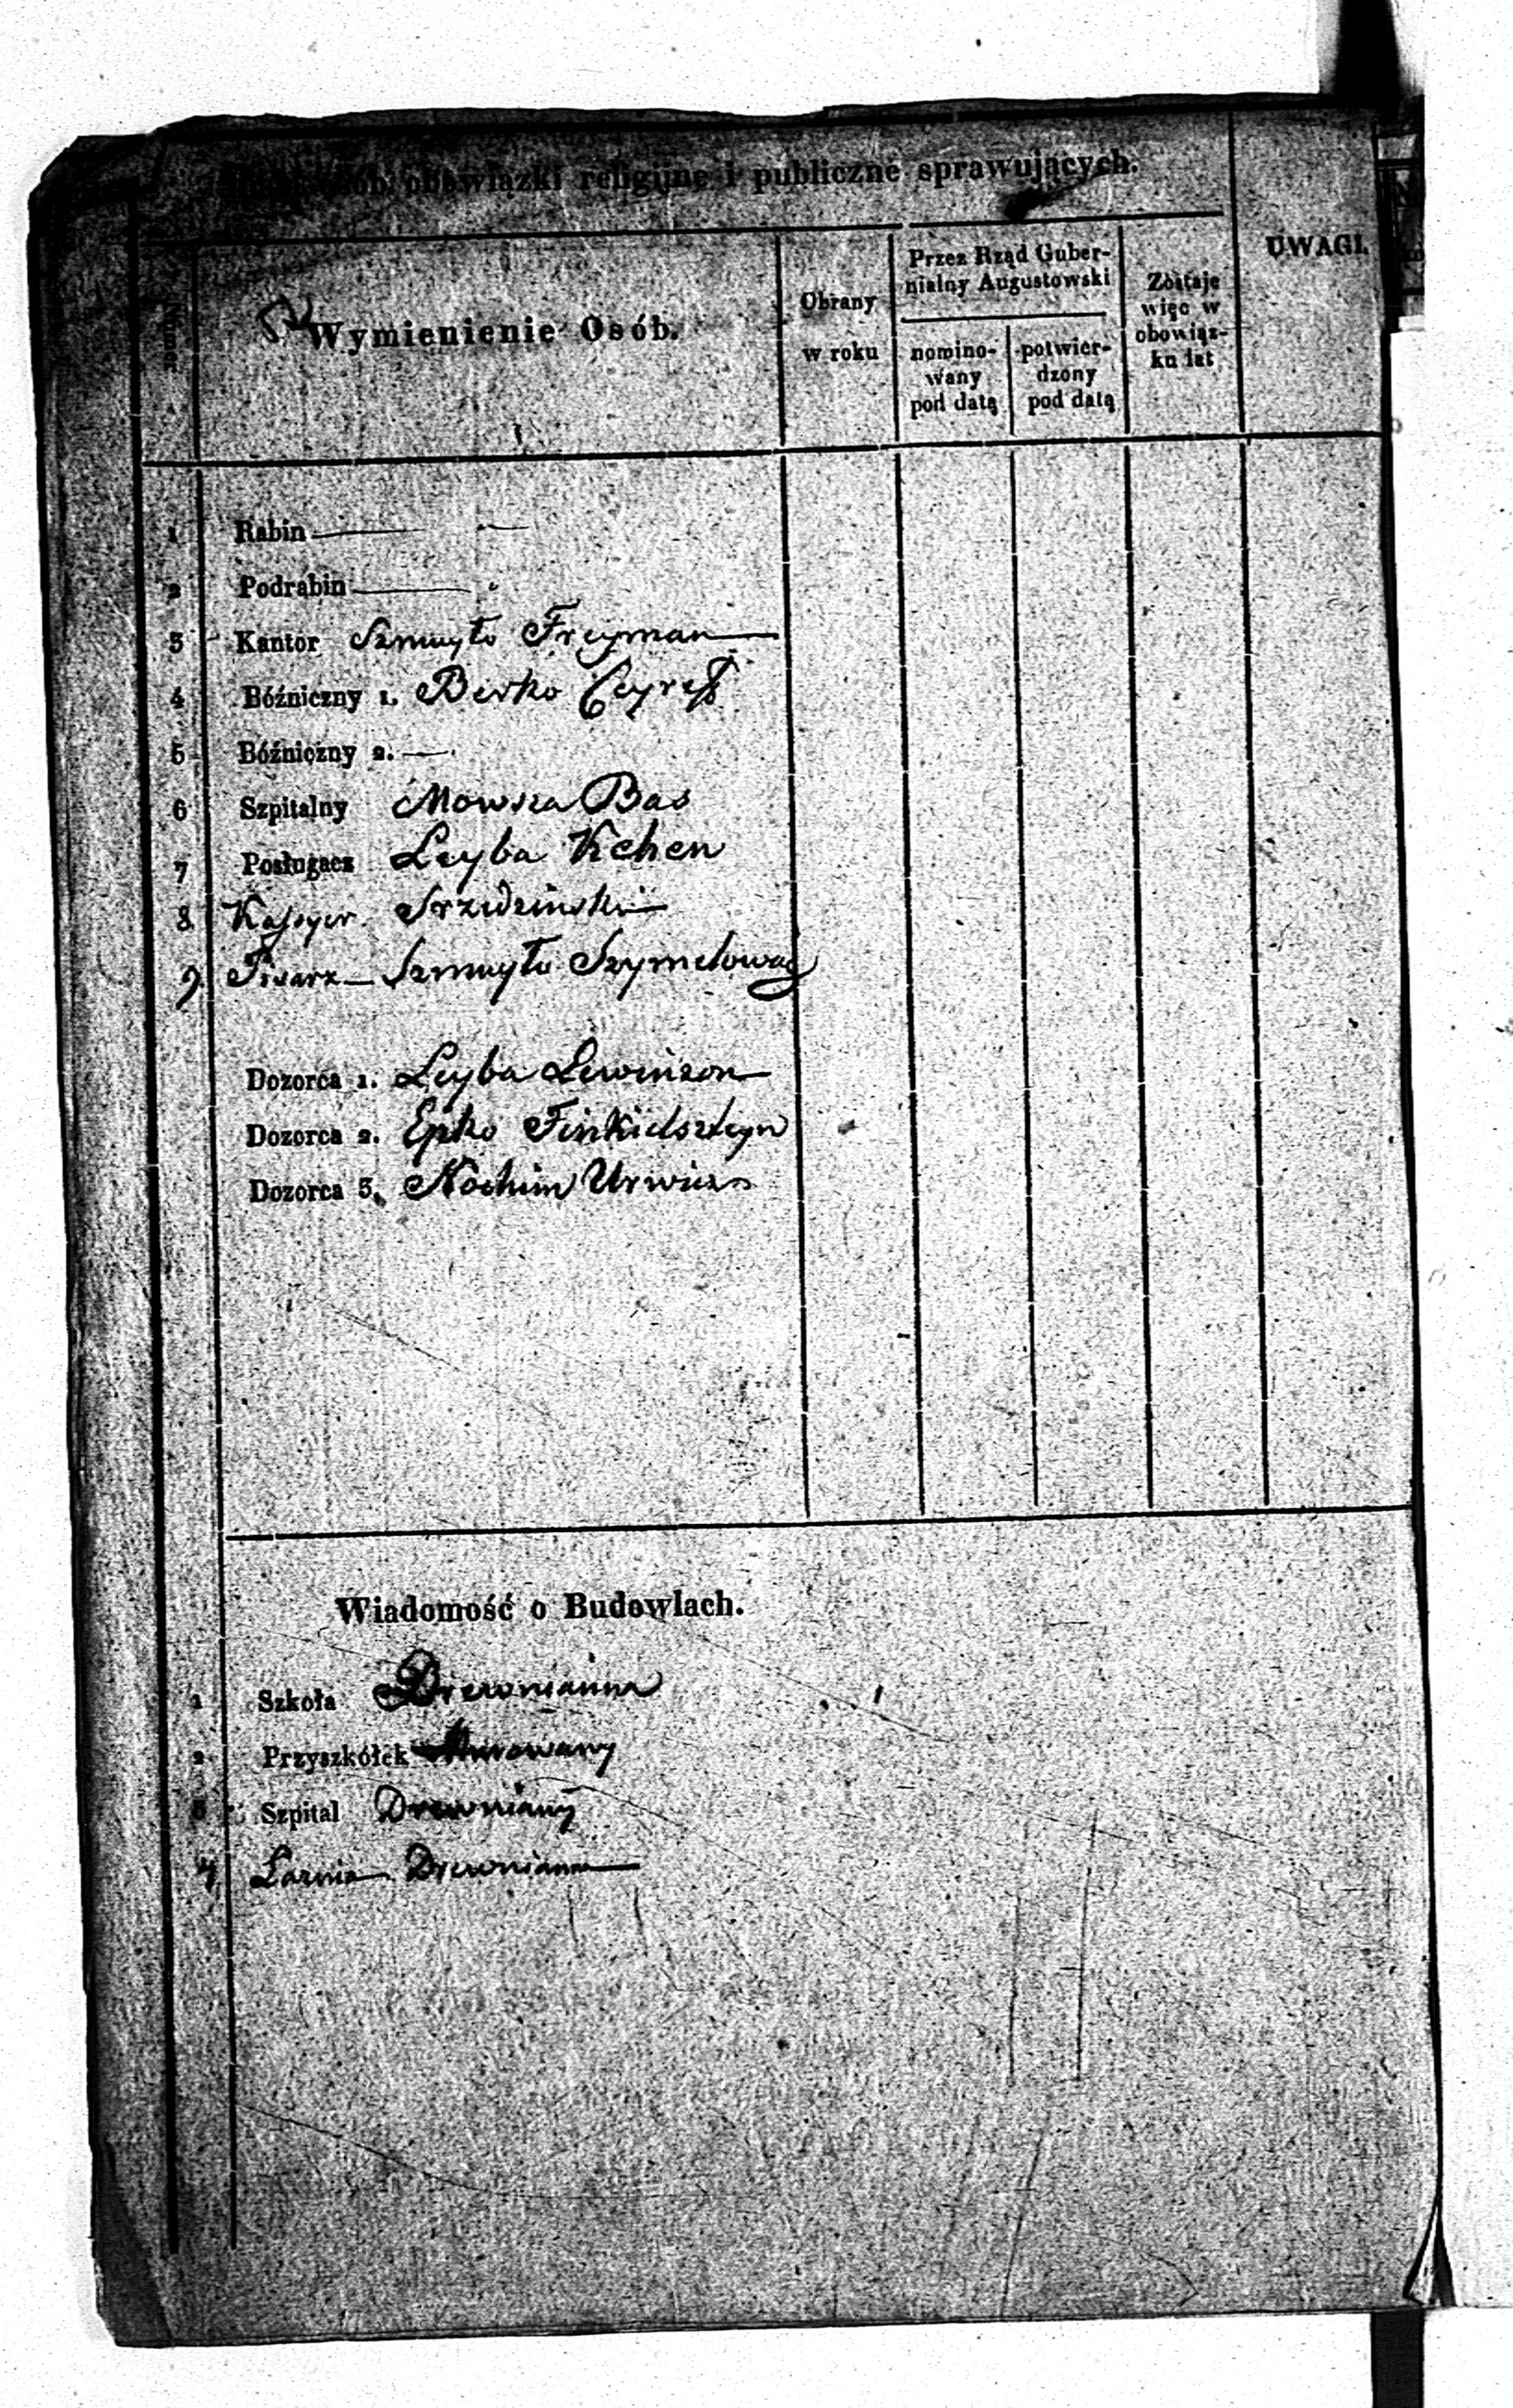 osób obowiązki religijne i publiczne sprawujących.
UWAGI.
Numer
Wymienienie Osób.
Obrany
w roku
Przez Rząd Guber-
nialny Augustowski
nomino-
wany
pod datą
potwier-
dzony
pod datą
Zostaje
więc w
obowiąz-
ku lat
1 Rabin —
2 Podrabin —
3 Kantor Szmuyło Freyman
4 Bóźniczny 1. Berko
5 Bóźniczny 2. —
6 Szpitalny Mowsza Bas
7 Posługacz Leyba Kchen
8. Kassyer
9. Pisarz — Szmuyło
Dozorca 1. Leyba Lewinson
Dozorca 2. Epko Finkielszteyn
Dozorca 3. Nochim Urwicz
Wiadomość o Budowlach.
1 Szkoła Drewnianna
2 Przyszkółek Murowany
3 Szpital Drewniany
4 Łaznia Drewnianna